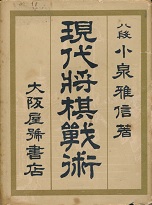 八段 小泉雅信著
現代将棋戰術
大阪屋號書店